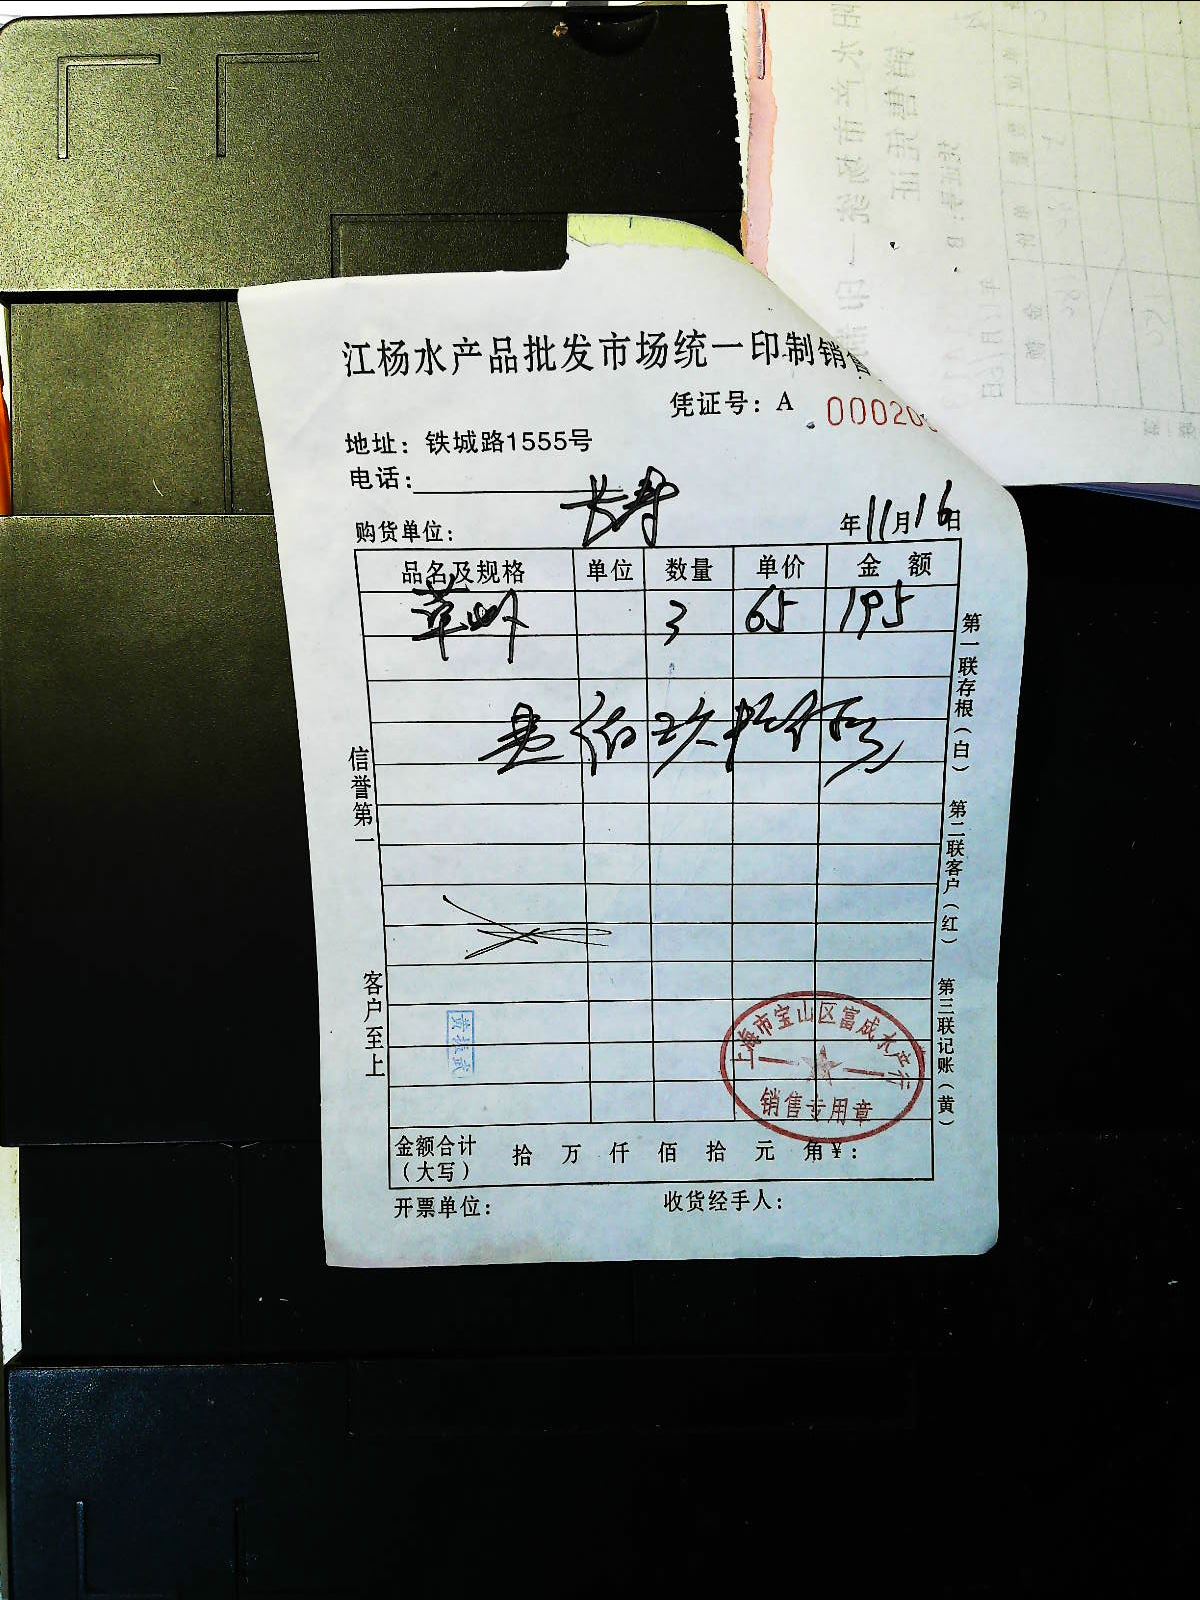 江杨水产品批发市场统一印制销售
凭证号：A 00020
地址：铁城路1555号
电话：
购货单位： 长寿 年11月16日
品名及规格 单位 数量 单价 金额
草虾 3 65 195
壹佰玖拾伍元
信誉第一
客户至上
第一联存根（白）
第二联客户（红）
第三联记账（黄）
上海市宝山区富成水产行
销售专用章
金额合计（大写） 拾 万 仟 佰 拾 元 角 ¥：
开票单位： 收货经手人：